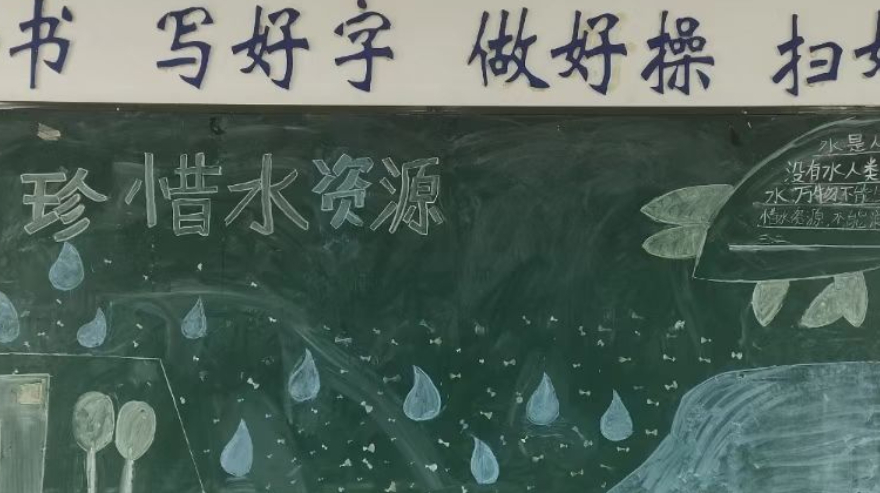 书 写好字 做好操 扫
珍惜水资源
水是人
没有水人类
水万物不能
惜水资源,不能